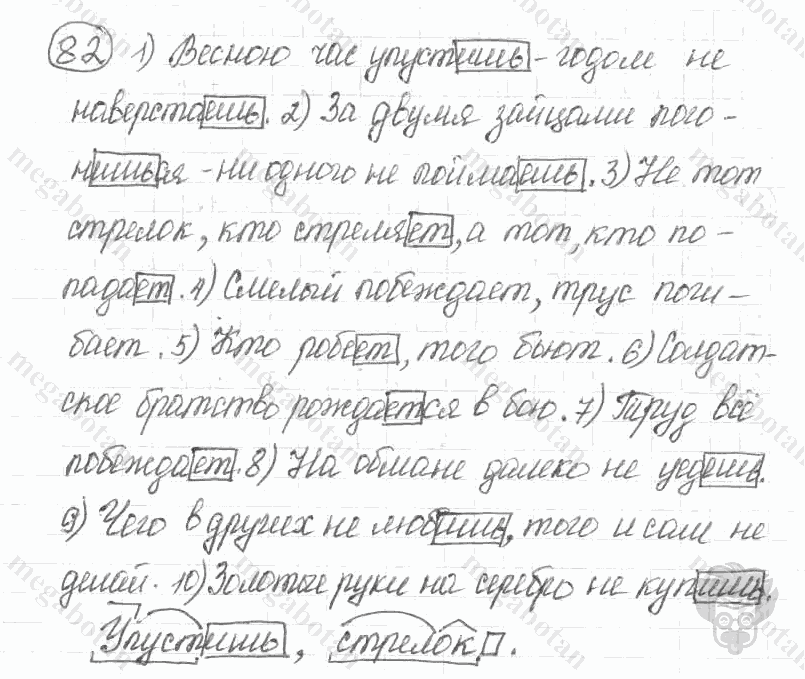 82 1) Весною час упустишь - годом не
наверстаешь. 2) За двумя зайцами пого-
нишься - ни одного не поймаешь. 3) Не тот
стрелок, кто стреляет, а тот, кто по-
падает. 4) Смелый побеждает, трус поги-
бает. 5) Кто робеет, того бьют. 6) Солдат-
ское братство рождается в бою. 7) Труд всё
побеждает. 8) На обмане далеко не уедешь.
9) Чего в других не любишь, того и сам не
делай. 10) Золотые руки на серебро не купишь.
Упустишь, стрелок.
megabotan